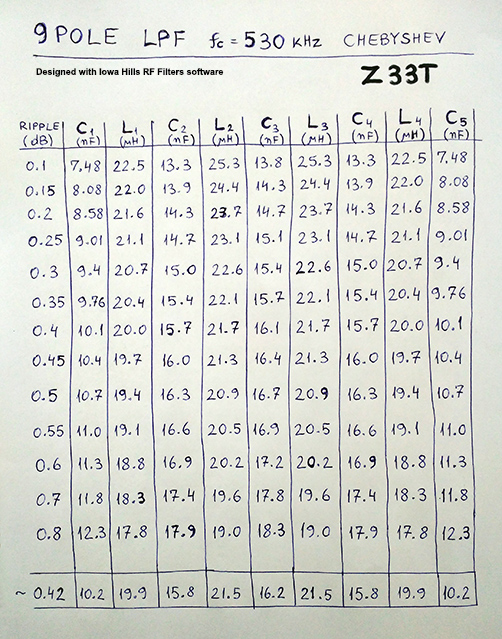 9 POLE LPF fc = 530 KHz CHEBYSHEV
Designed with Iowa Hills RF Filters software
Z33T
RIPPLE (dB) C1 (nF) L1 (μH) C2 (nF) L2 (μH) C3 (nF) L3 (μH) C4 (nF) L4 (μH) C5 (nF)
0.1 7.48 22.5 13.3 25.3 13.8 25.3 13.3 22.5 7.48
0.15 8.08 22.0 13.9 24.4 14.3 24.4 13.9 22.0 8.08
0.2 8.58 21.6 14.3 23.7 14.7 23.7 14.3 21.6 8.58
0.25 9.01 21.1 14.7 23.1 15.1 23.1 14.7 21.1 9.01
0.3 9.4 20.7 15.0 22.6 15.4 22.6 15.0 20.7 9.4
0.35 9.76 20.4 15.4 22.1 15.7 22.1 15.4 20.4 9.76
0.4 10.1 20.0 15.7 21.7 16.1 21.7 15.7 20.0 10.1
0.45 10.4 19.7 16.0 21.3 16.4 21.3 16.0 19.7 10.4
0.5 10.7 19.4 16.3 20.9 16.7 20.9 16.3 19.4 10.7
0.55 11.0 19.1 16.6 20.5 16.9 20.5 16.6 19.1 11.0
0.6 11.3 18.8 16.9 20.2 17.2 20.2 16.9 18.8 11.3
0.7 11.8 18.3 17.4 19.6 17.8 19.6 17.4 18.3 11.8
0.8 12.3 17.8 17.9 19.0 18.3 19.0 17.9 17.8 12.3
~ 0.42 10.2 19.9 15.8 21.5 16.2 21.5 15.8 19.9 10.2